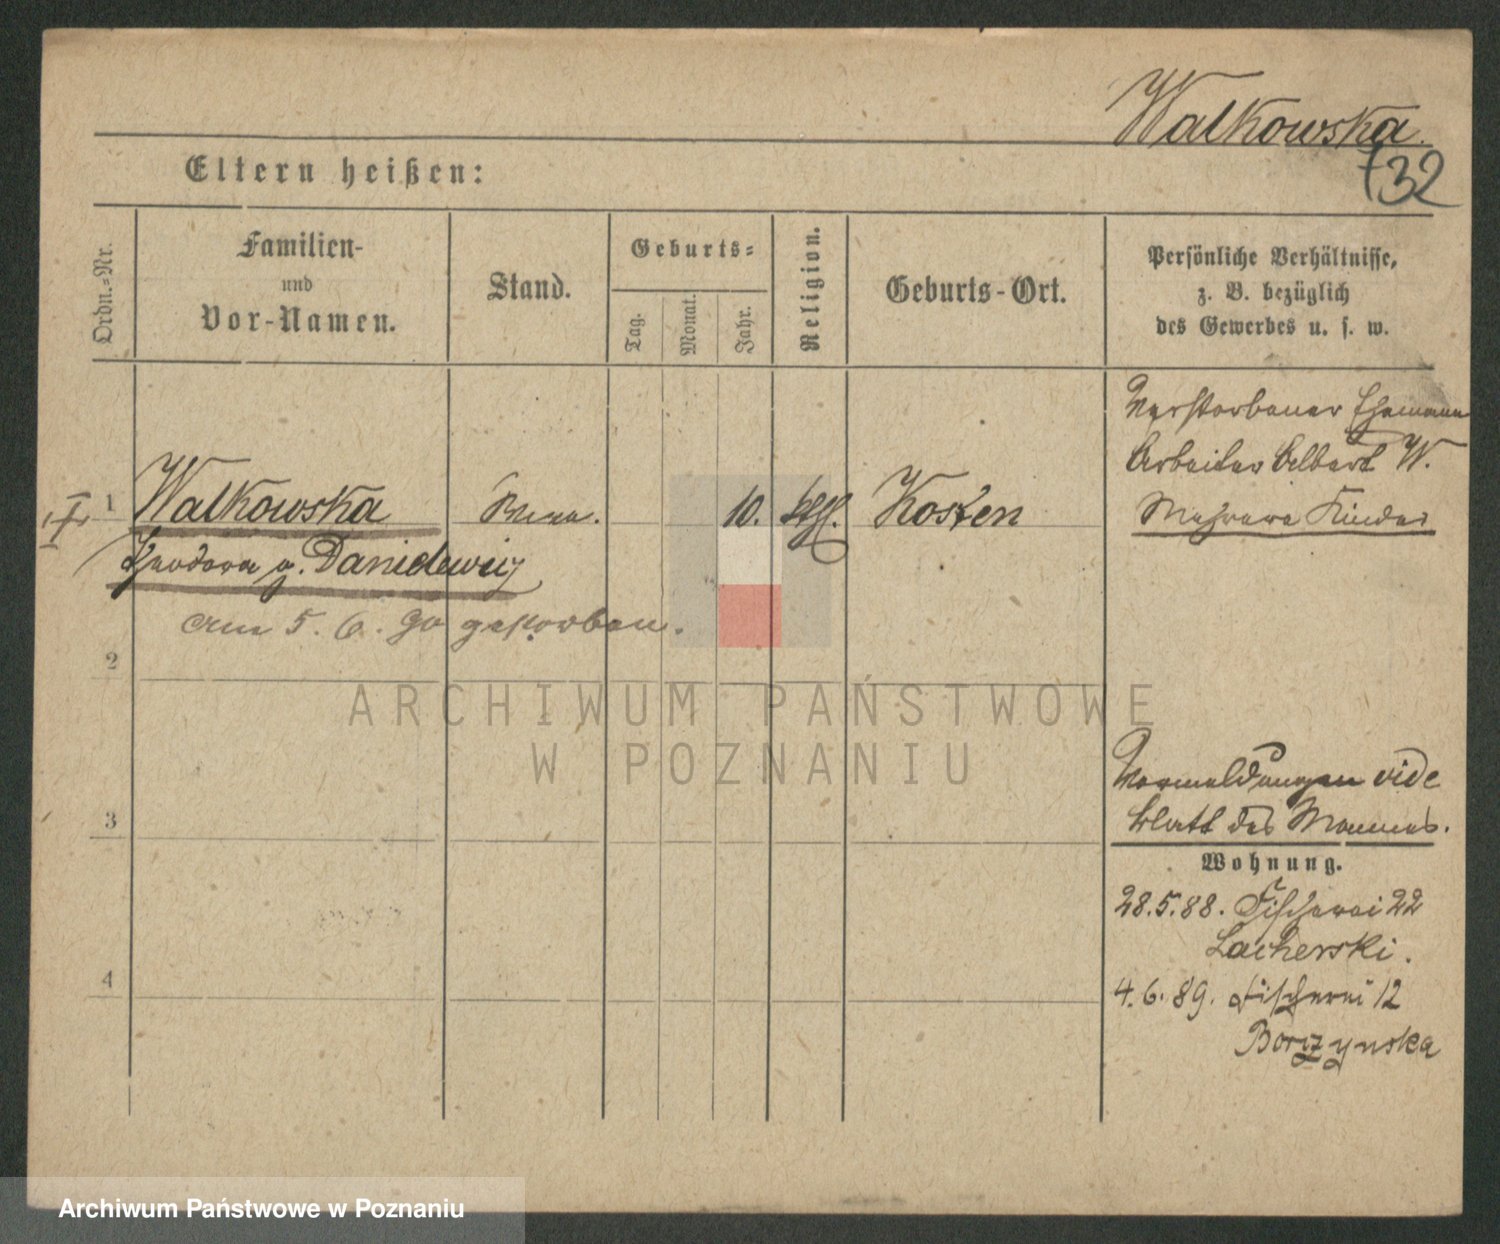 Walkowska.
732
Eltern heißen:
Ordn.-Nr.
Familien-
und
Vor-Namen.
Stand.
Geburts-
Tag.
Monat.
Jahr.
Religion.
Geburts-Ort.
Persönliche Verhältnisse,
z. B. bezüglich
des Gewerbes u. s. w.
Verstorbener Ehemann
Arbeiter Albert W.
Mehrere Kinder
1 Walkowska 10. kth. Kosten
Theodora g. Danielewicz
am 5. 6. 90 gestorben.
2
3
4
Vormeldungen vide
Blatt des Mannes.
Wohnung.
28.5.88. Fischerei 22
Lacherski.
4.6.89. Fischerei 12
Borczynska
ARCHIWUM PAŃSTWOWE
W POZNANIU
Archiwum Państwowe w Poznaniu